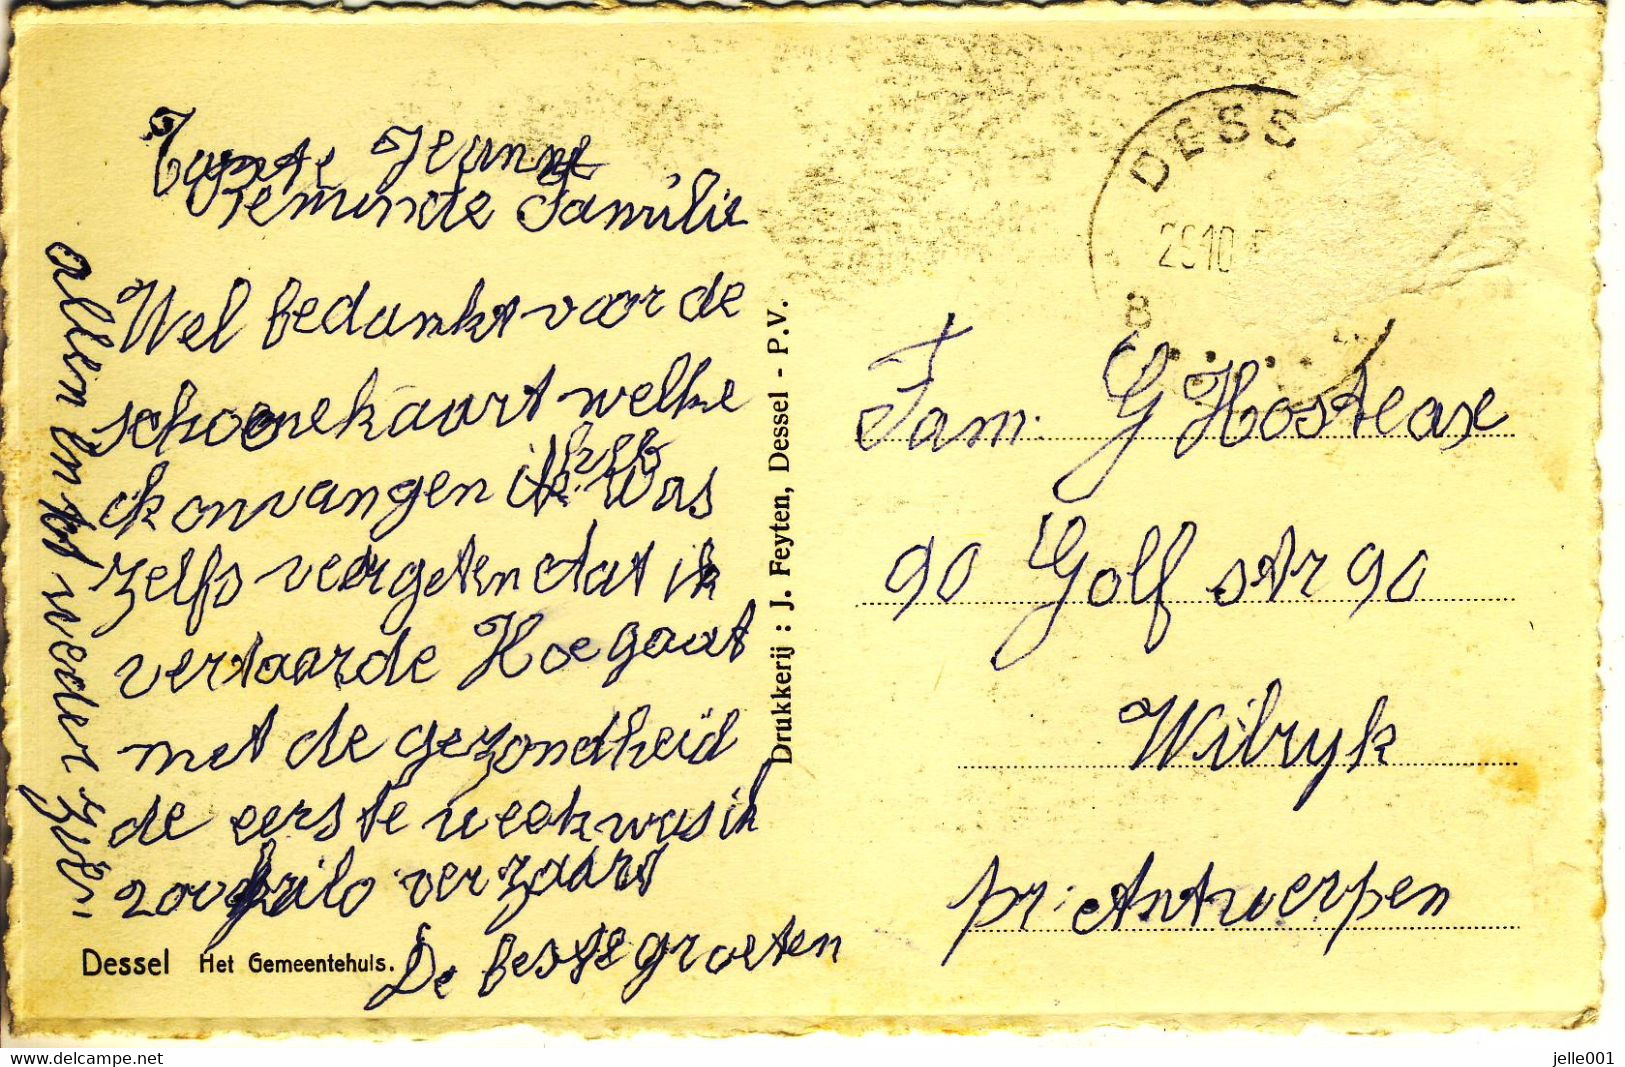 Tante Jeanne
Beminde Familie
Wel bedankt voor de
schoone kaart welke
ik onvangen heb
ik was
zelfs vergeten dat ik
vertaarde Hoe gaat
met de gezondheid
de eerste week was ik
200 kilo verzaart
De beste groeten
allen en tot weder zie-
Dessel Het Gemeentehuis.
Drukkerij : J. Feyten, Dessel - P.V.
DESS
2910
B
Fam. G Hosteaxe
90 Golf str 90
Wilryk
pr. Antwerpen
www.delcampe.net
jelle001